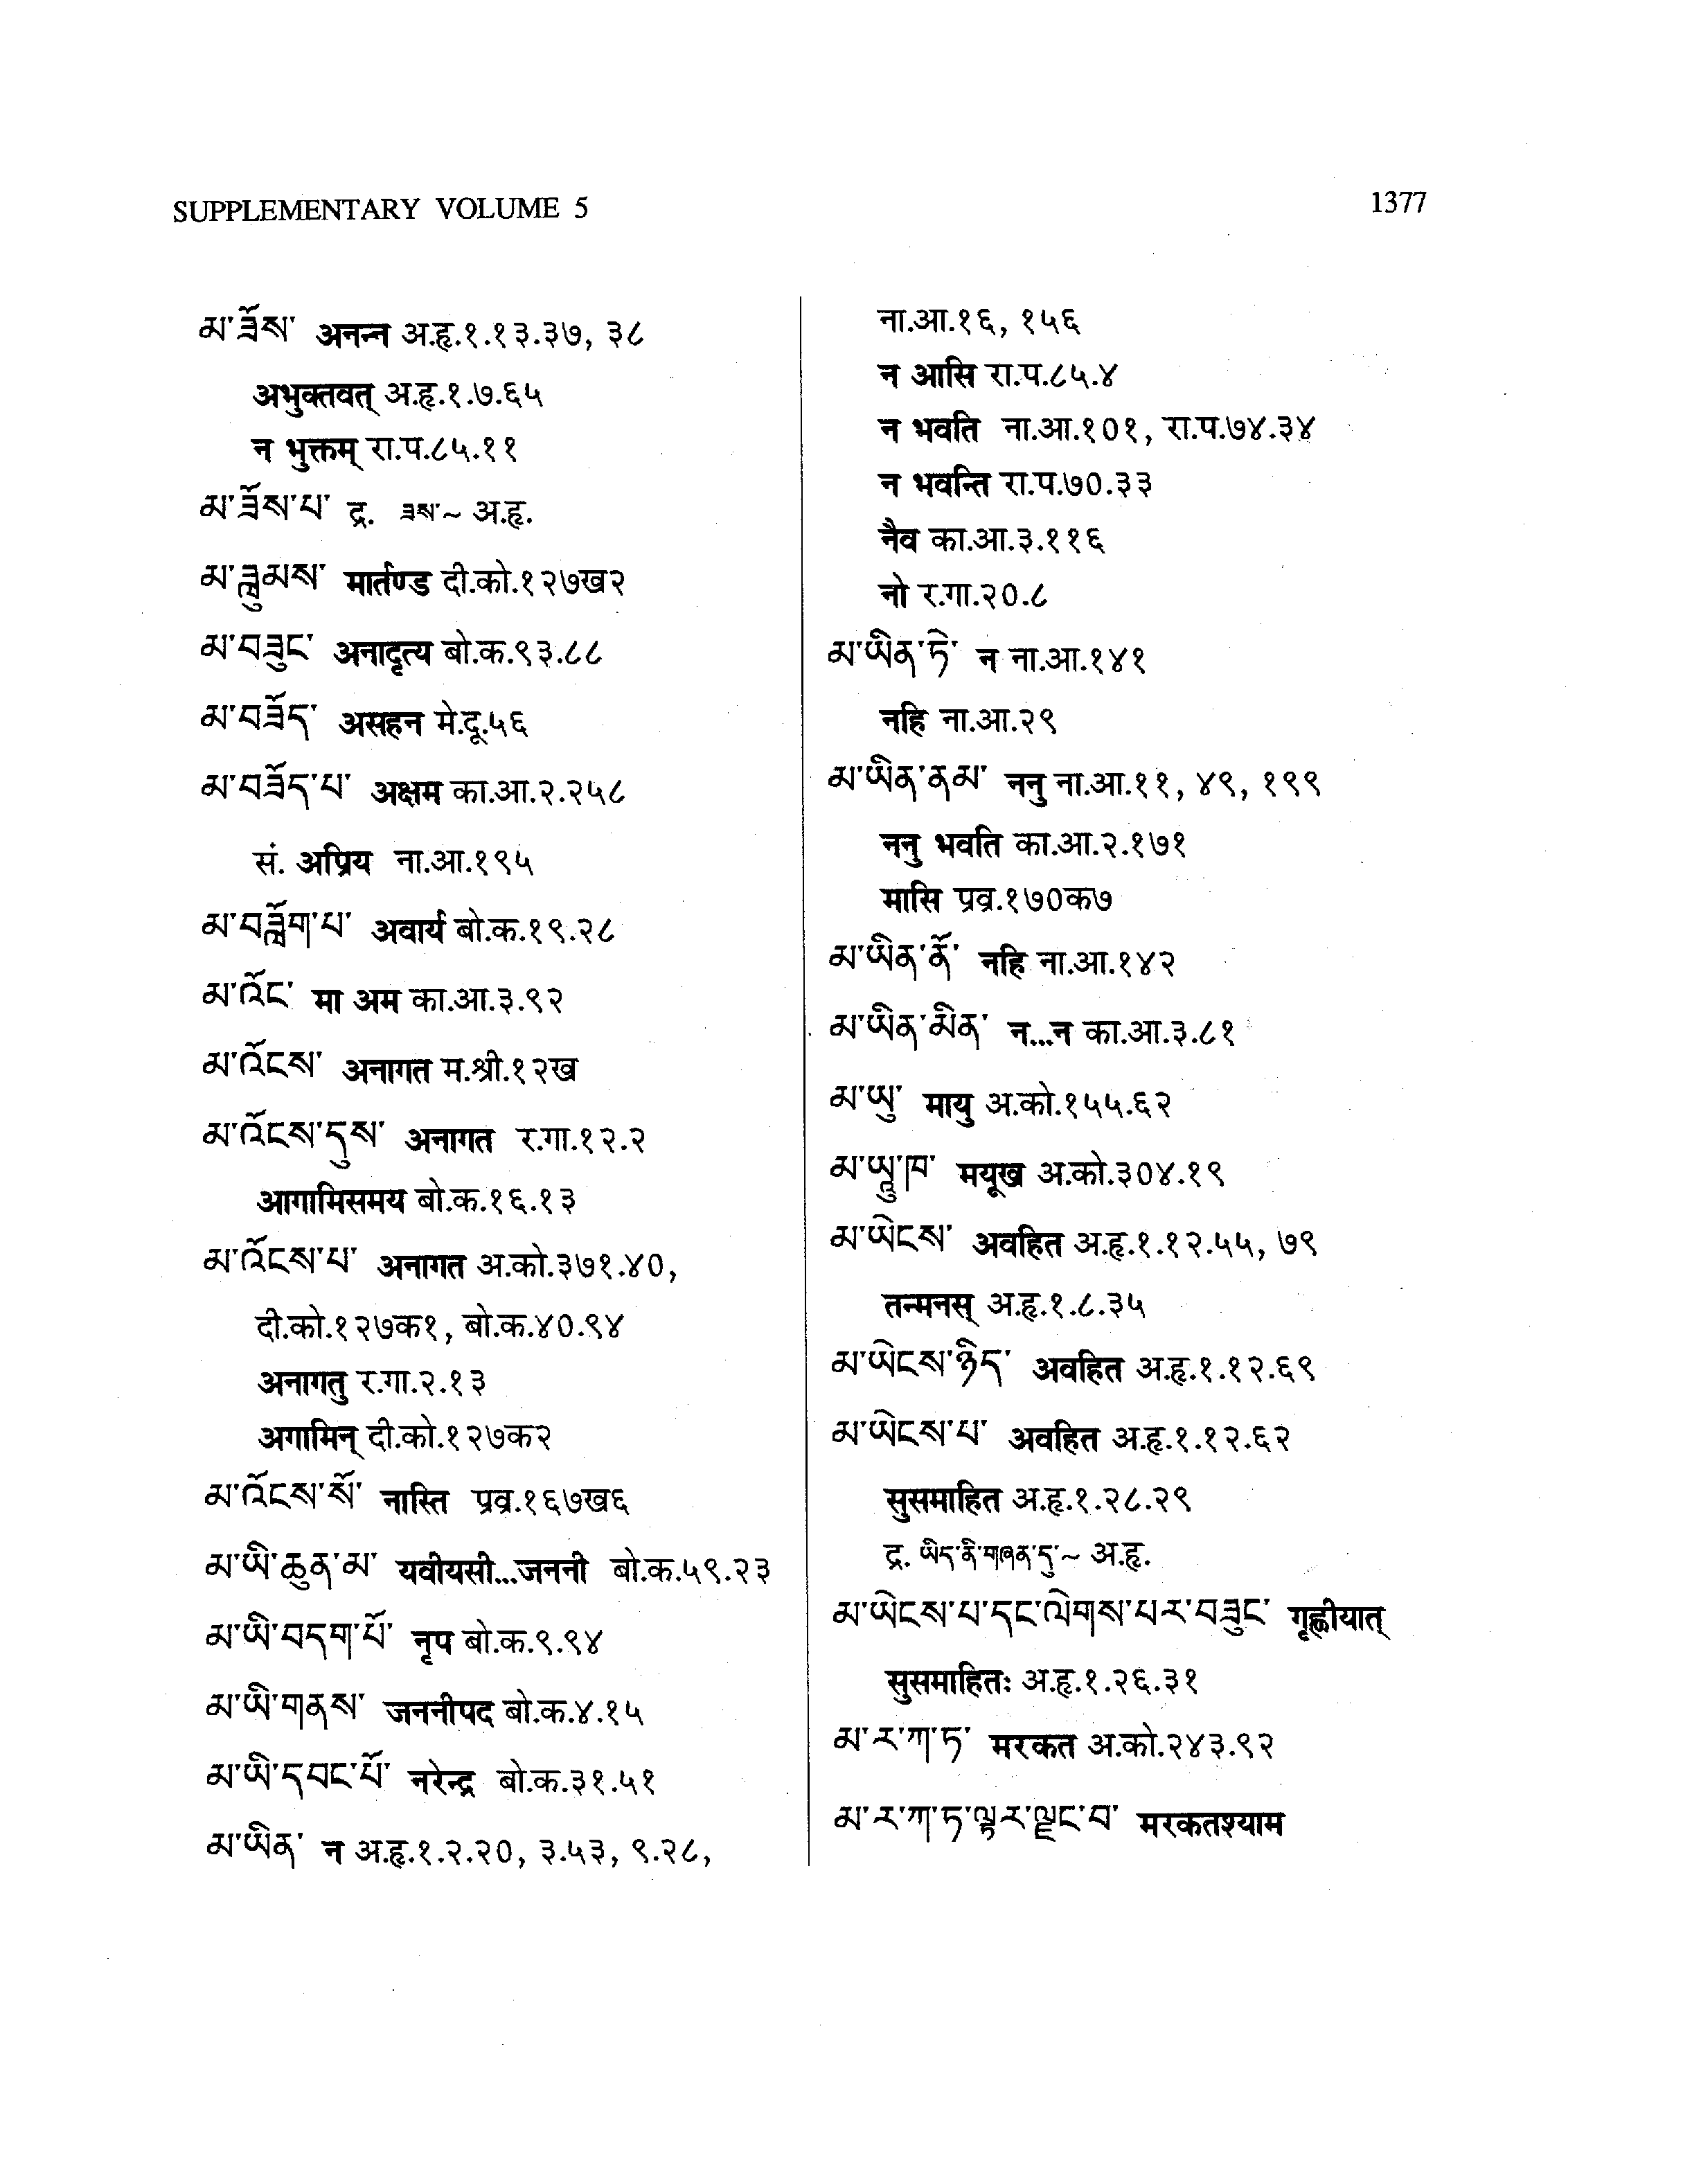 SUPPLEMENTARY VOLUME 5
1377
མ་ཟོས་ अनन्न अ.हृ.१.१३.३७, ३८
अभुक्तवत् अ.हृ.१.७.६५
न भुक्तम् रा.प.८५.११
མ་ཟོས་པ་ द्र. ཟས་~ अ.हृ.
མ་ཟླུམས་ मार्तण्ड दी.को.१२७ख२
མ་བཟུང་ अनादृत्य बो.क.९३.८८
མ་བཟོད་ असहन मे.दू.५६
མ་བཟོད་པ་ अक्षम का.आ.२.२५८
सं. अप्रिय ना.आ.१९५
མ་བཟློག་པ་ अवार्य बो.क.१९.२८
མ་འོང་ मा अम का.आ.३.९२
མ་འོངས་ अनागत म.श्री.१२ख
མ་འོངས་དུས་ अनागत र.गा.१२.२
आगामिसमय बो.क.१६.१३
མ་འོངས་པ་ अनागत अ.को.३७१.४०,
दी.को.१२७क१, बो.क.४०.९४
अनागतु र.गा.२.१३
अगामिन् दी.को.१२७क२
མ་འོངས་སོ་ नास्ति प्रव्र.१६७ख६
མ་ཡི་ཆུན་མ་ यवीयसी...जननी बो.क.५९.२३
མ་ཡི་བདག་པོ་ नृप बो.क.९.९४
མ་ཡི་གནས་ जननीपद बो.क.४.१५
མ་ཡི་དབང་པོ་ नरेन्द्र बो.क.३१.५१
མ་ཡིན་ न अ.हृ.१.२.२०, ३.५३, ९.२८,
ना.आ.१६, १५६
न आसि रा.प.८५.४
न भवति ना.आ.१०१, रा.प.७४.३४
न भवन्ति रा.प.७०.३३
नैव का.आ.३.११६
नो र.गा.२०.८
མ་ཡིན་ཏེ་ न ना.आ.१४१
नहि ना.आ.२९
མ་ཡིན་ནམ་ ननु ना.आ.११, ४९, १९९
ननु भवति का.आ.२.१७१
मासि प्रव्र.१७०क७
མ་ཡིན་ནོ་ नहि ना.आ.१४२
མ་ཡིན་མིན་ न...न का.आ.३.८१
མ་ཡུ་ मायु अ.को.१५५.६२
མ་ཡཱུ་ཁ་ मयूख अ.को.३०४.१९
མ་ཡེངས་ अवहित अ.हृ.१.१२.५५, ७९
तन्मनस् अ.हृ.१.८.३५
མ་ཡེངས་ཉིད་ अवहित अ.हृ.१.१२.६९
མ་ཡེངས་པ་ अवहित अ.हृ.१.१२.६२
सुसमाहित अ.हृ.१.२८.२९
द्र. ཡིད་ནི་གཞན་དུ་~ अ.हृ.
མ་ཡེངས་པ་དང་ལེགས་པར་བཟུང་ गृह्णीयात्
सुसमाहितः अ.हृ.१.२६.३१
མ་ར་ཀ་ཏ་ मरकत अ.को.२४३.९२
མ་ར་ཀ་ཏ་ལྟར་ལྗང་བ་ मरकतश्याम